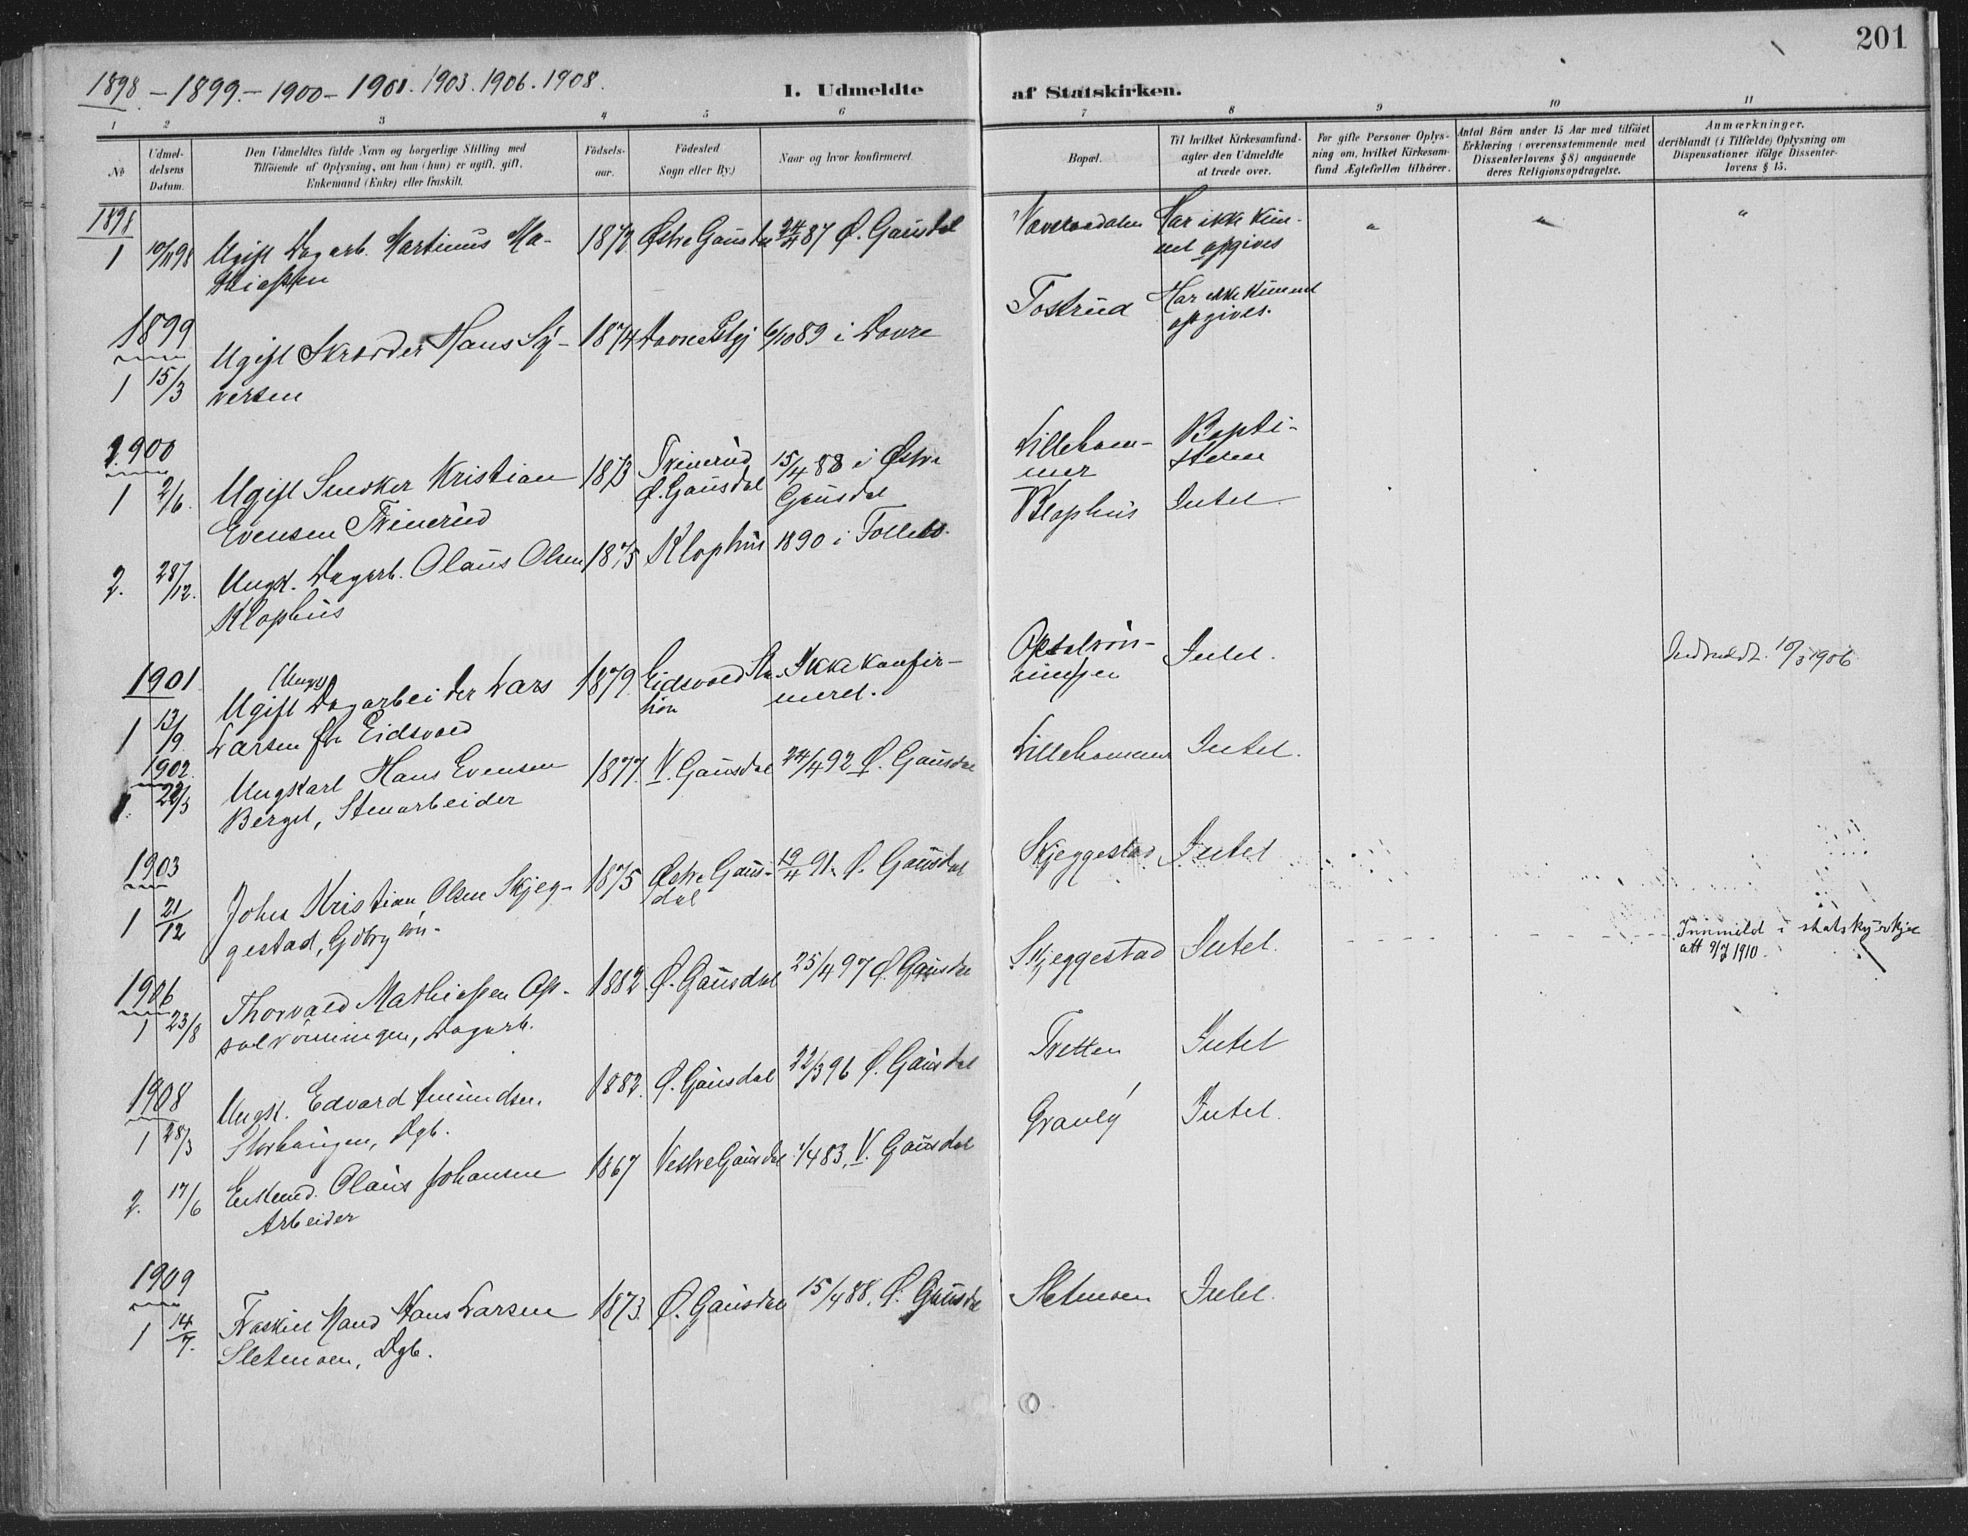 201
1898 – 1899 – 1900 – 1901. 1903. 1906. 1908.
I. Udmeldte af Statskirken.
1 2 3 4 5 6 7 8 9 10 11
No
Udmel-
delsens
Datum.
Den Udmeldtes fulde Navn og borgerlige Stilling med
Tilföiende af Oplysning, om han (hun) er ugift, gift,
Enkemand (Enke) eller fraskilt.
Födsels-
aar.
Födested
Sogn eller By.)
Naar og hvor konfirmeret.
Bopæl.
Til hvilket Kirkesamfund-
agter den Udmeldte
at træde over.
For gifte Personer Oplys-
ning om, hvilket Kirkesam-
fund Ægtefællen tilhörer.
Antal Börn under 15 Aar med tilföiet
Erklæring (overensstemmende med
Dissenterlovens § 8) angaaende
deres Religionsopdragelse.
Anmærkninger,
deriblandt (i Tilfælde) Oplysning om
Dispensationer ifölge Dissenter-
lovens § 15.
1898
1 10/11 98 Ugift Dagarb. Martinus Ma- 1872 Østre Gausdal 24/4 87 Ø. Gausdal Har ikke kun- " " "
thiassen net opgives
1899 Tostrud Har ikke kunnet
opgives.
1 15/3 Ugift Skrædder Hans Sy- 1874 Dovre 6/10 89 i Dovre
versen
1900
1 2/6. Ugift Snedker Kristian 1873 Ø. Gausdal 15/4 88 i Østre Gausdal Lilleham- Bapti-
Evensen mer sterne
2. 28/12. Ungk. Dagarb. Olaus Olsen 1875 Klophus 1890 i Follebo. Klophus Intet
Klophus
1901.
1 13/9 Ugift (Ungk) Dagarbeider Lars 1879 Eidsvold Sta- Ikke konfir- Intet. Indmeldt 10/3 1906.
Larsen fra Eidsvold tion meret.
1902.
1. 22/3 Ungkarl Hans Evensen 1877. V. Gausdal 24/4 92 Ø. Gausdal Lillehammer Intet.
Berget, Stenarbeider
1903
1 21/12 Johan Kristian Olsen Skjeg- 1875 Østre Gaus- 19/4 91. Ø. Gausdal Skjeggestad Intet
gestad, Gdbr. sön. dal
1906
1 23/8 Thorvald Mathiessen Op- 1882. Ø. Gausdal 25/4 97 Ø. Gausdal Skjeggestad Intet. Innmeld i statskyrkja
salrönningen, Dagarb. att 9/7 1910.
1908
1 28/3 Ungk. Edvard Amundsen 1882. Ø. Gausdal 22/3 96 Ø. Gausdal Tretten Intet
Storhaugen, Dgb.
2. 17/6 Enkemd. Olaus Johansen 1867 Vestre Gausdal 1/4 83, V. Gausdal Intet.
Arbeider
1909
1 14/7. Fraskilt Mand Hans Larsen 1873. Ø. Gausdal 15/4 88. Ø. Gausdal Sletmoen Intet.
Sletmoen, Dgb.